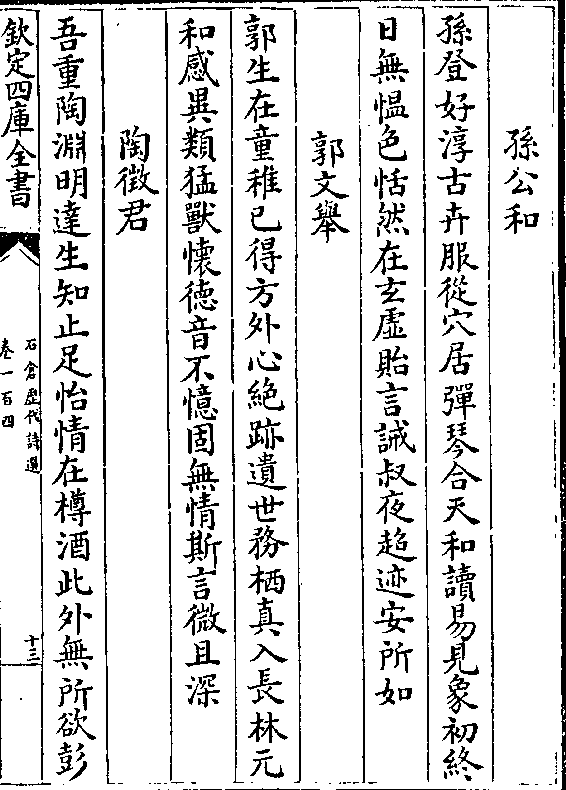 孫公和
孫登好淳古卉服從穴居彈琴合天和讀易見象初終
日無慍色恬然在玄虛貽言誡叔夜超迹安所如
郭文舉
郭生在童稚已得方外心絶跡遺世務栖真入長林元
和感異類猛獸懷徳音不憶固無情斯言微且深
陶徴君
吾重陶淵明達生知止足怡情在樽酒此外無所欲彭
欽定四庫全書
石倉歴代詩選
卷一百四
十三